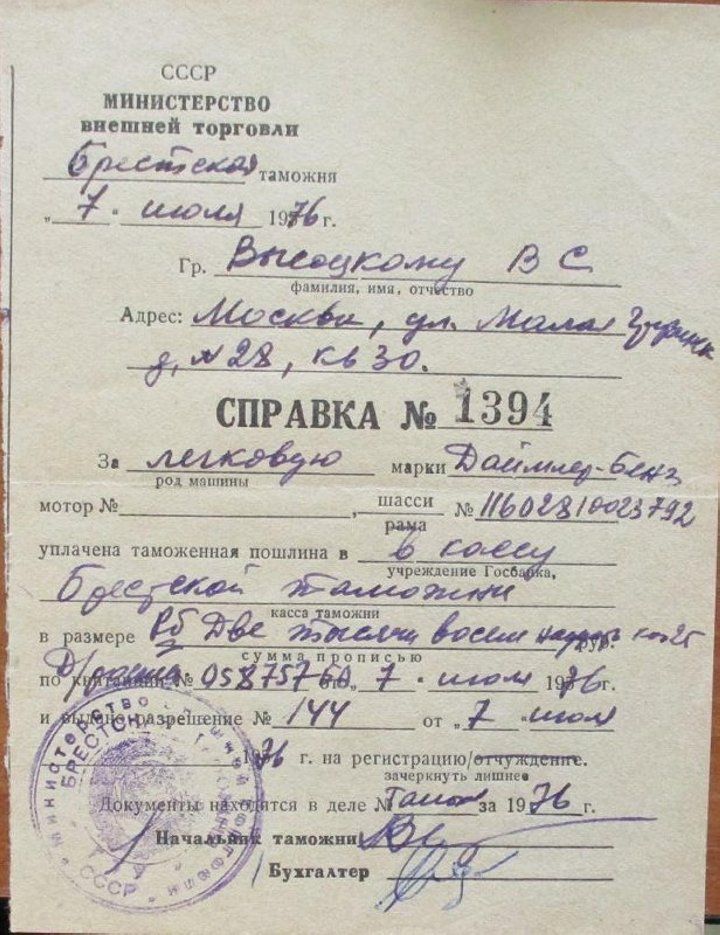 СССР
МИНИСТЕРСТВО
внешней торговли
Брестская таможня
„ 7 " июля 1976 г.
Гр. Высоцкому В С
фамилия, имя, отчество
Адрес: Москва, ул. Малая Грузинск
д, № 28, кв 30.
СПРАВКА № 1394
За легковую марки Даймлер-Бенз
род машины
мотор № , шасси № 11602810023792
рама
уплачена таможенная пошлина в в кассу
учреждение Госбанка,
Брестской таможни
касса таможни
в размере Рб Две тысячи восем руб. коп 25
сумма прописью
по квитанции № 058757 „ 7 " июля 1976 г.
и выдано разрешение № 144 от „ 7 " июля
1976 г. на регистрацию/отчуждение.
зачеркнуть лишнее
Документы находятся в деле № тамож за 1976 г.
Начальник таможни
Бухгалтер
Министерство внешней торговли
БРЕСТСКАЯ
СССР